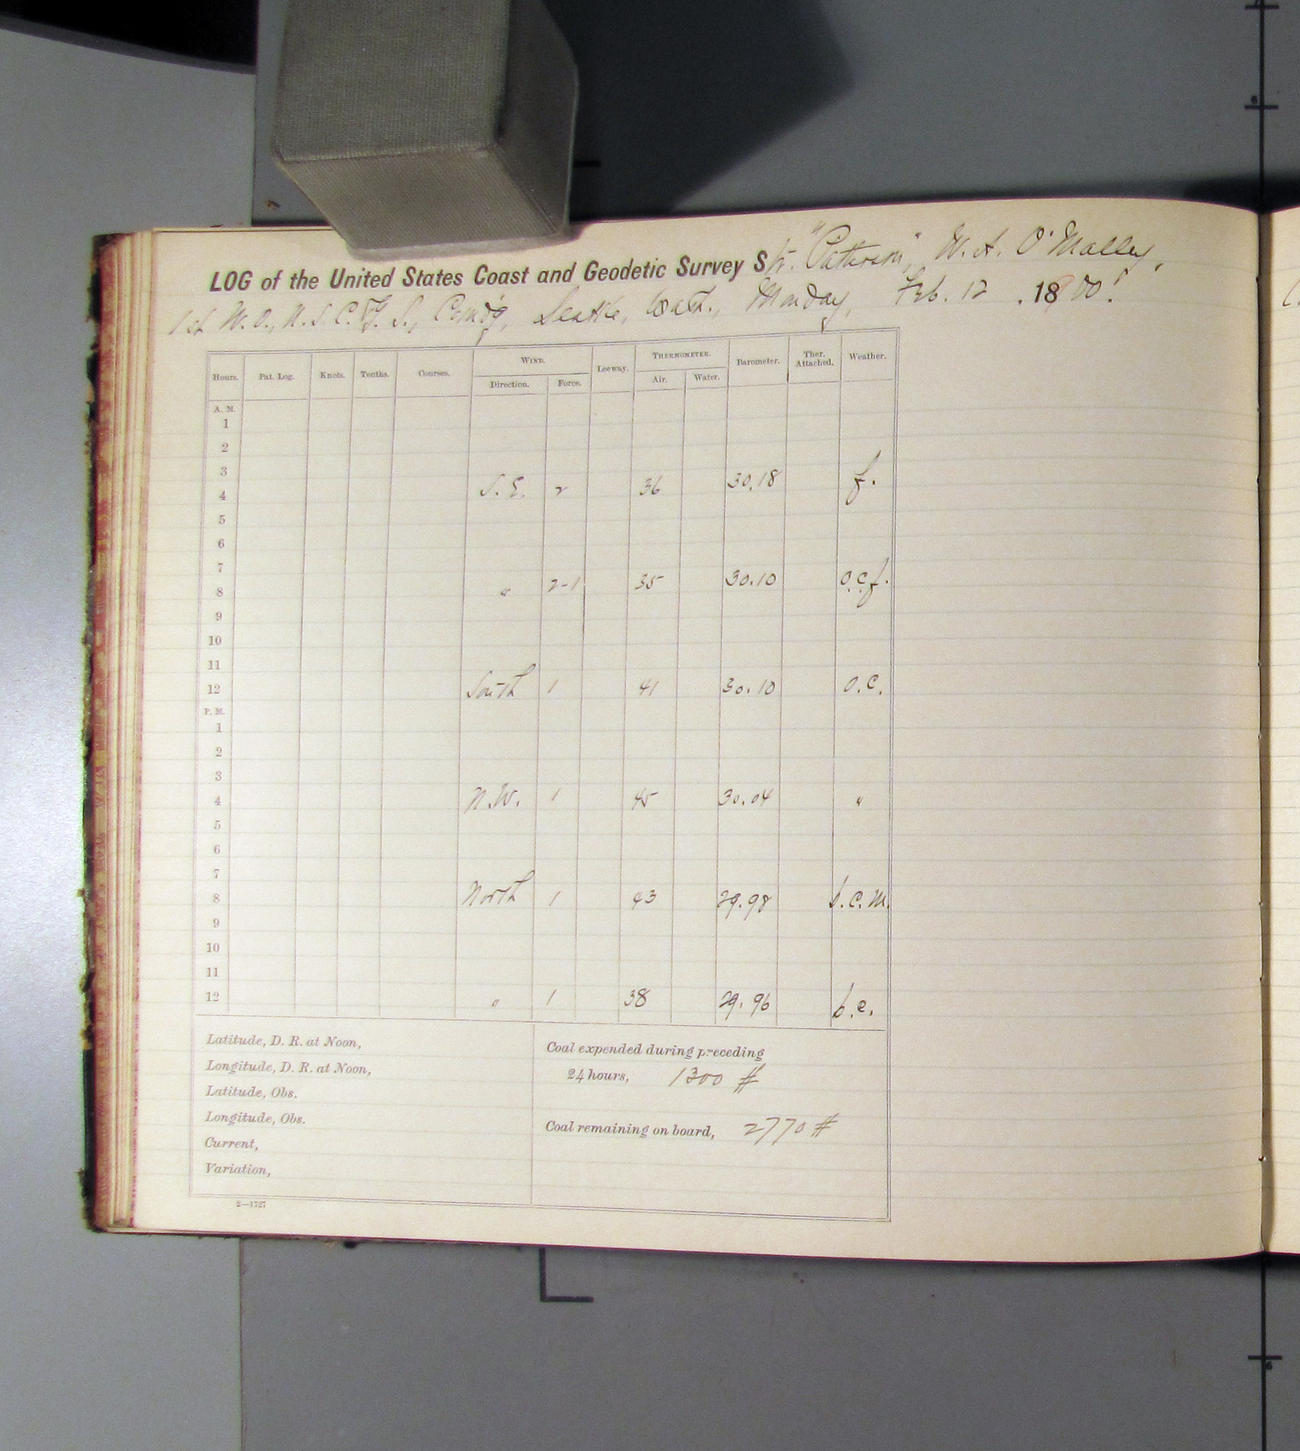 LOG of the United States Coast and Geodetic Survey Str. "Patterson", W. A. O'Malley,
1st W. O., U. S. C. & G. S., Comd'g, Seattle, Wash., Monday, Feb. 12, 1900.
Hours. Pat. Log. Knots. Tenths. Courses. WIND. Leeway. THERMOMETER. Barometer. Ther. Attached. Weather.
Direction. Force. Air. Water.
A. M.
1
2
3
4 S. E. 2 36 30.18 f.
5
6
7
8 " 2-1 35 30.10 o.c.f.
9
10
11
12 South 1 41 30.10 o.c.
P. M.
1
2
3
4 N.W. 1 45 30.04 "
5
6
7
8 North 1 43 29.98 b.c.m.
9
10
11
12 " 1 38 29.96 b.c.
Latitude, D. R. at Noon,
Longitude, D. R. at Noon,
Latitude, Obs.
Longitude, Obs.
Current,
Variation,
Coal expended during preceding
24 hours, 1300 #
Coal remaining on board, 2770 #
2—1727